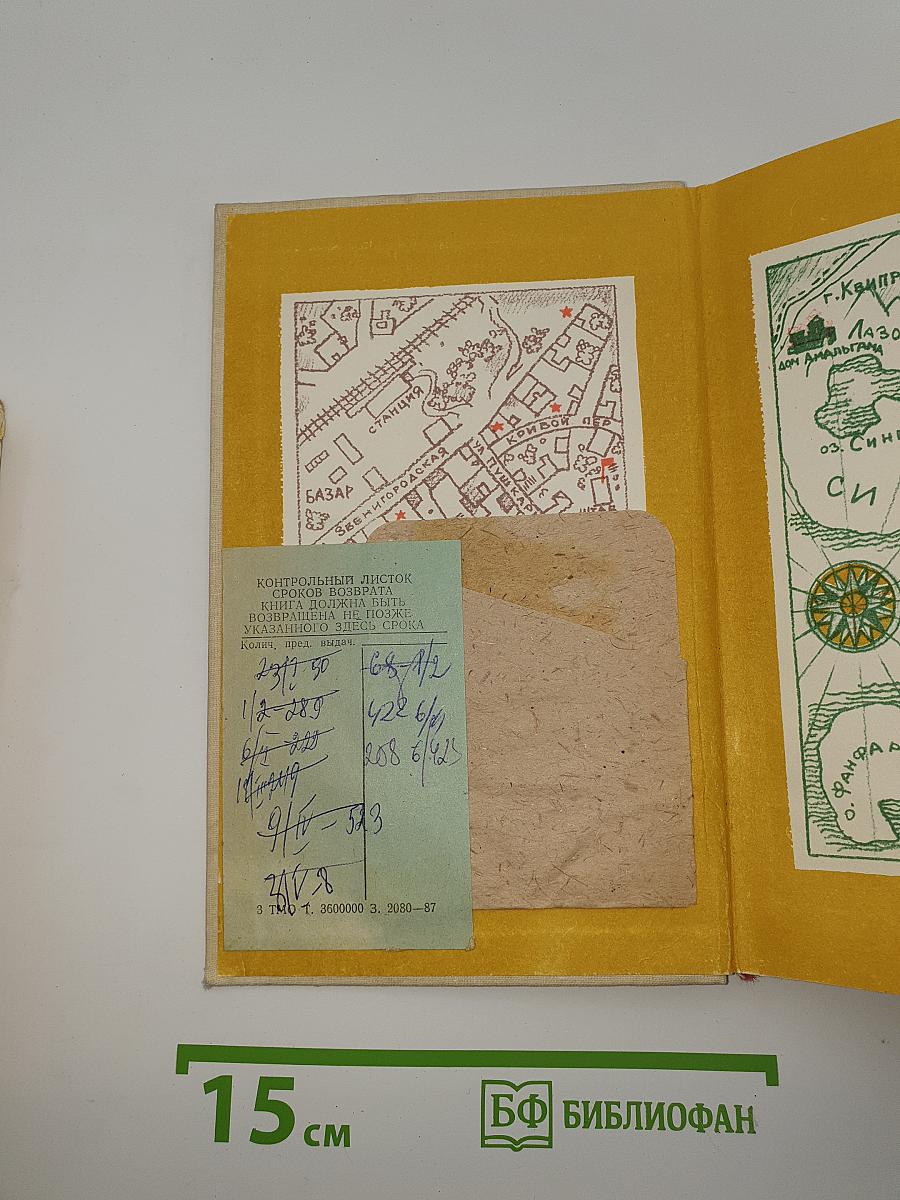 СТАНЦИЯ
БАЗАР
ЗВЕНИГОРОДСКАЯ
КРИВОЙ ПЕР
УЛ ПУШКАР
ШТАБ
г. КВИПР
ЛАЗО
ДОМ АМАЛЬГАМА
ОЗ. СИН
СИ
О. ФАНФАР
КОНТРОЛЬНЫЙ ЛИСТОК
СРОКОВ ВОЗВРАТА
КНИГА ДОЛЖНА БЫТЬ
ВОЗВРАЩЕНА НЕ ПОЗЖЕ
УКАЗАННОГО ЗДЕСЬ СРОКА
Колич. пред. выдач.
23/I 50
68 1/2
1/2 289
422
6/II 229
208 6/423
9/IV - 523
3 ТМО Т. 3600000 З. 2080—87
15 см
БФ БИБЛИОФАН